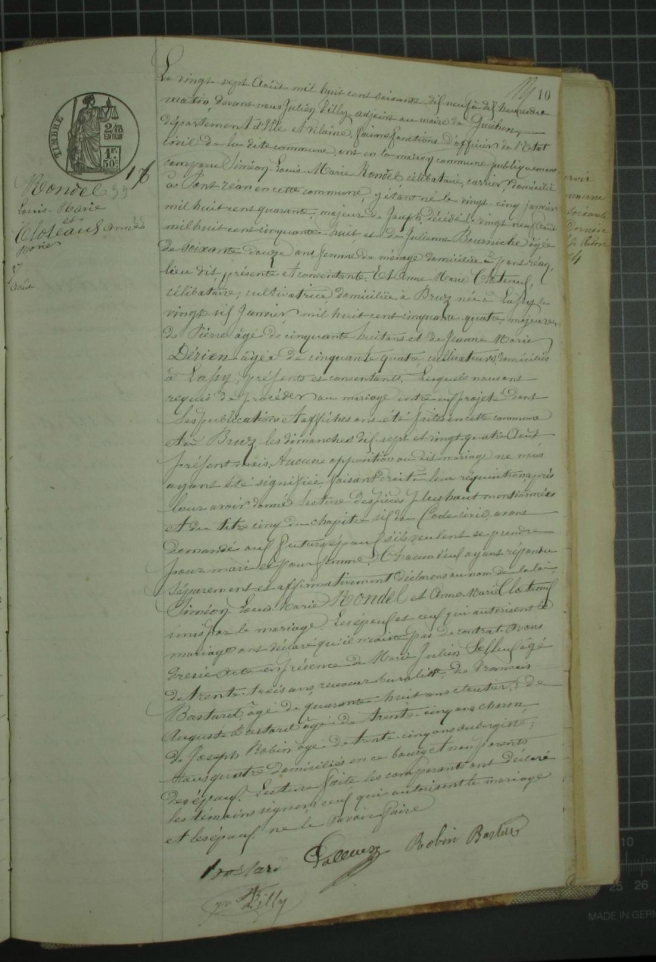 10
TIMBRE
Le vingt sept Août mil huit cent soixante dix neuf à dix heures du
matin, devant nous Julien Tilly, adjoint au maire de Guichen,
département d'Ille et Vilaine, faisant fonctions d'officier de l'Etat
civil de la dite commune, ont en la maison commune publiquement
comparu Siméon Louis Marie Rondel célibataire, carrier domicilié
à Pont Réan en cette commune, y étant né le vingt cinq janvier
mil huit cent quarante, majeur de Joseph, décédé le vingt neuf Août
mil huit cent cinquante huit et de Julienne âgée
de soixante douze ans femme de ménage domiciliée à pont réan,
lieu dit présente et consentante, Et Anne Marie
célibataire, cultivatrice domiciliée à Bruz née à Lassy le
vingt six Janvier mil huit cent cinquante quatre majeure,
de Pierre âgé de cinquante huit ans et de Jeanne Marie
Dérien âgée de cinquante quatre cultivateurs domiciliés
à Lassy, présents et consentants, Lesquels nous ont
requis de procéder au mariage entre eux projeté dont
les publications et affiches ont été faites en cette commune
et à Bruz les dimanches dix sept et vingt quatre Août
présent mois, Aucune opposition au dit mariage ne nous
ayant été signifiée faisant droit à leur réquisition, après
leur avoir donné lecture des pièces plus haut mentionnées
et du titre cinq du chapitre six du Code civil, avons
demandé aux futurs époux s'ils veulent se prendre
pour mari et pour femme, Chacun d'eux ayant répondu
séparément et affirmativement déclarons au nom de la loi
Siméon Louis Marie Rondel et Anne Marie
unis par le mariage Les époux et ceux qui autorisent le
mariage ont déclaré qu'il n'existe pas de contrat. Dont
acte en présence de Marie Julien âgé
de trente trois ans, receveur buraliste, de François
Bastard, âgé de quarante huit ans ; de
Auguste Bastard âgé de trente cinq ans charron,
de Joseph Robin âgé de trente cinq ans aubergiste,
tous quatre domiciliés en ce bourg et non parents
des époux. Lecture faite les comparants ont déclaré
les témoins signent ceux qui autorisent le mariage
et les époux ne le savoir faire
Robin
Tilly
Rondel
Louis Marie
et
Anne
Marie